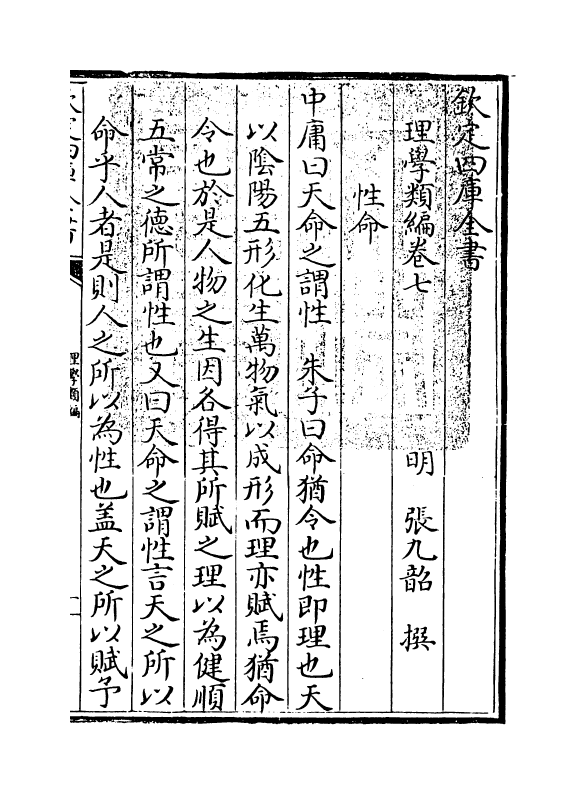 欽定四庫全書
理學類編卷七　明　張九韶　撰
性命
中庸曰天命之謂性　朱子曰命猶令也性即理也天
以陰陽五形化生萬物氣以成形而理亦賦焉猶命
令也於是人物之生因各得其所賦之理以為健順
五常之德所謂性也又曰天命之謂性言天之所以
命乎人者是則人之所以為性也盖天之所以賦予
理學類編